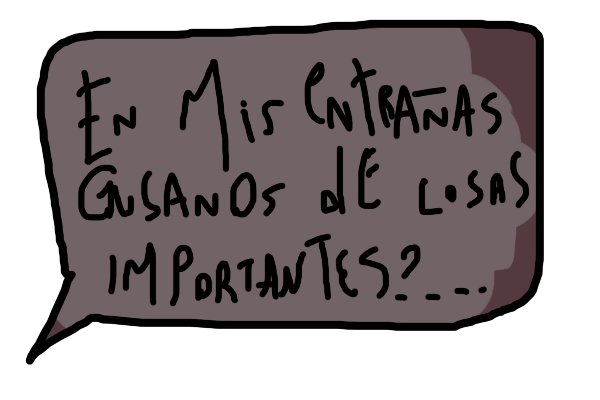 EN MIS ENTRAÑAS
GUSANOS DE LOSAS
IMPORTANTES?....